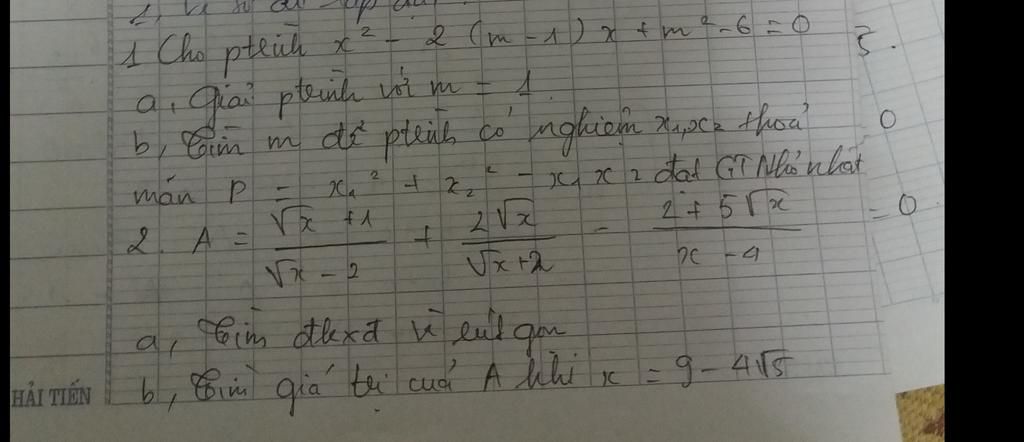 1 Cho ptrình x² - 2 (m - 1) x + m² - 6 = 0
5.
a, Giải ptrình với m = 1
b, Tìm m để ptrình có nghiệm x₁, x₂ thoả
0
mãn P = x₁² + x₂² - x₁ x₂ đạt GT Nhỏ nhất
2. A = (√x + 1)/(√x - 2) + 2√x/(√x + 2) - (2 + 5√x)/(x - 4)
= 0
a, Tìm đkxđ và rút gọn
b, Tìm giá trị cuả A khi x = 9 - 4√5
HẢI TIẾN